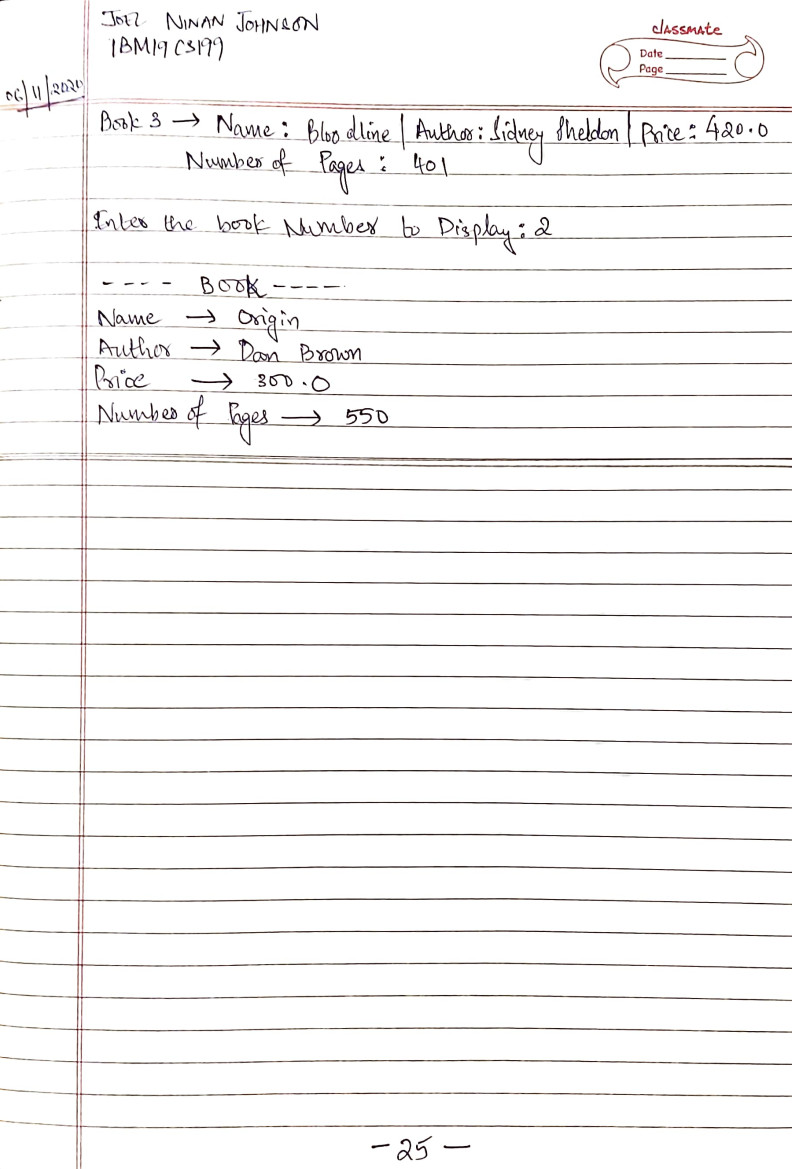 JOEL NINAN JOHNSON
1BM19CS199
classmate
Date
Page
06/11/2020
Book 3 → Name: Bloodline | Author: Sidney Sheldon | Price: 420.0
Number of Pages: 401
Enter the book Number to Display: 2
---- BOOK ----
Name → Origin
Author → Dan Brown
Price → 300.0
Number of Pages → 550
-25-